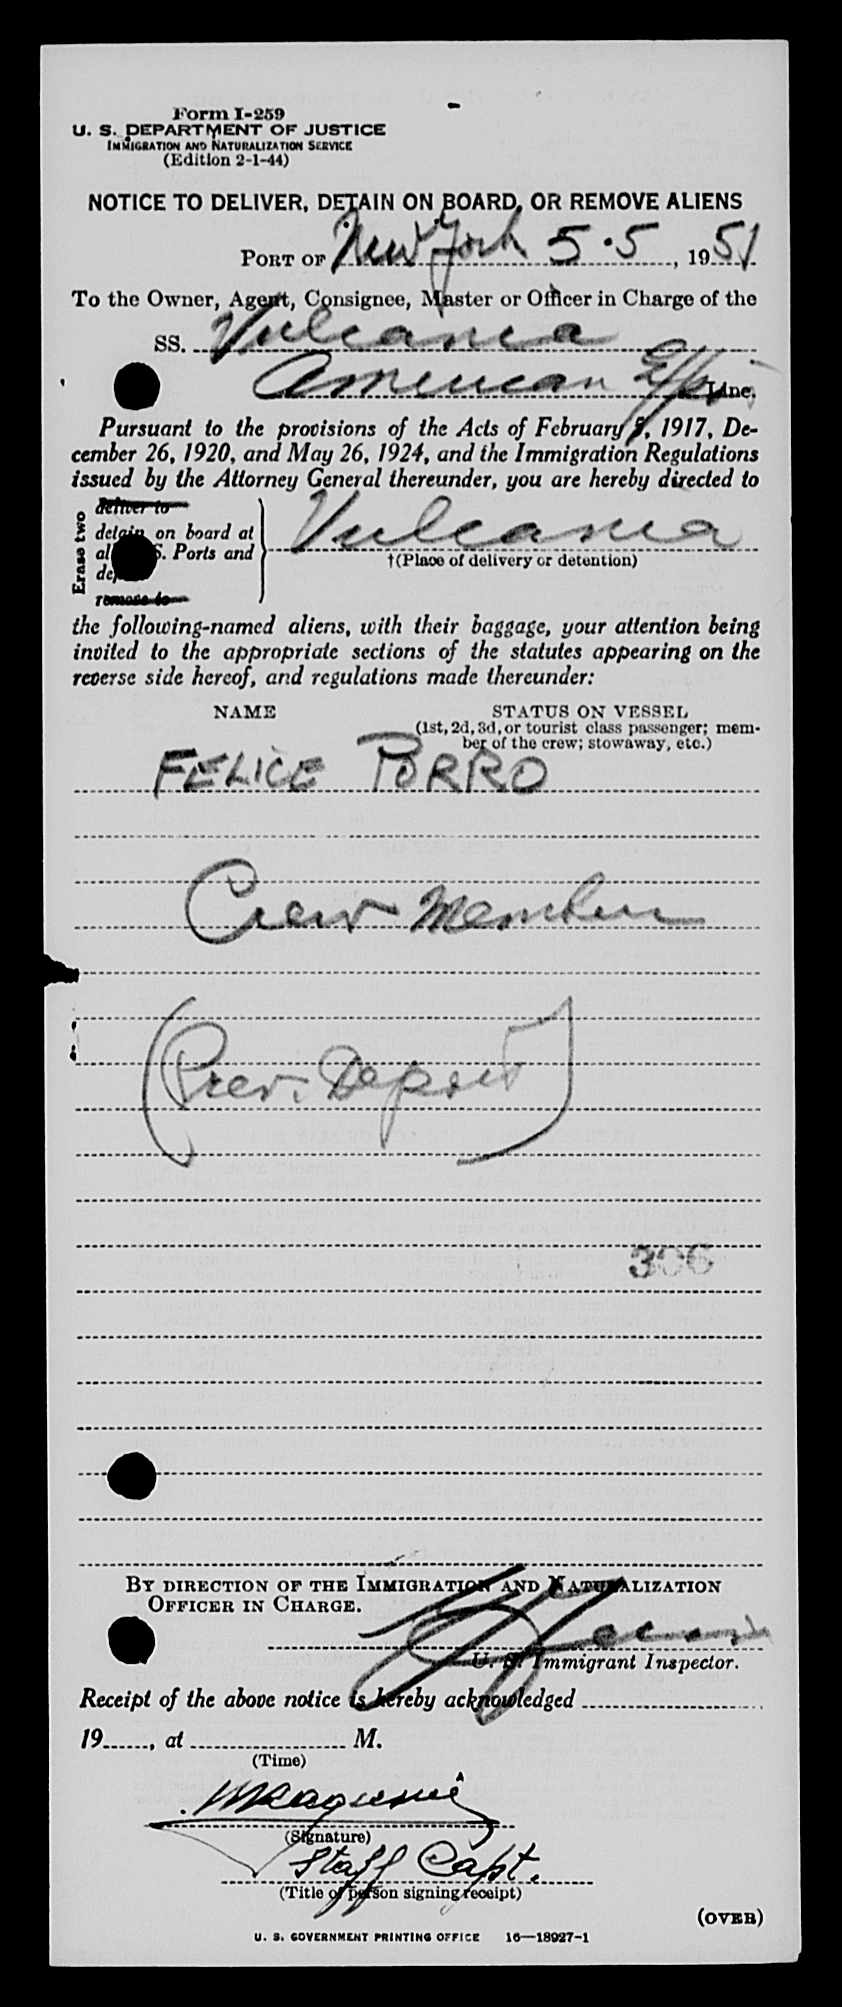 Form I-259
U. S. DEPARTMENT OF JUSTICE
IMMIGRATION AND NATURALIZATION SERVICE
(Edition 2-1-44)
NOTICE TO DELIVER, DETAIN ON BOARD, OR REMOVE ALIENS
PORT OF New York 5-5, 1951
To the Owner, Agent, Consignee, Master or Officer in Charge of the
SS. Vulcania
American Exp. Line.
Pursuant to the provisions of the Acts of February 5, 1917, De-
cember 26, 1920, and May 26, 1924, and the Immigration Regulations
issued by the Attorney General thereunder, you are hereby directed to
Erase two
deliver to
detain on board at
S. Ports and
Vulcania
†(Place of delivery or detention)
remove to
the following-named aliens, with their baggage, your attention being
invited to the appropriate sections of the statutes appearing on the
reverse side hereof, and regulations made thereunder:
NAME STATUS ON VESSEL
(1st, 2d, 3d, or tourist class passenger; mem-
ber of the crew; stowaway, etc.)
FELICE PORRO
Crew Member
(Prev. Deport)
306
BY DIRECTION OF THE IMMIGRATION AND NATURALIZATION
OFFICER IN CHARGE.
U. S. Immigrant Inspector.
Receipt of the above notice is hereby acknowledged
19, at M.
(Time)
(Signature)
Staff Capt.
(Title of person signing receipt)
(OVER)
U. S. GOVERNMENT PRINTING OFFICE 16—18927-1